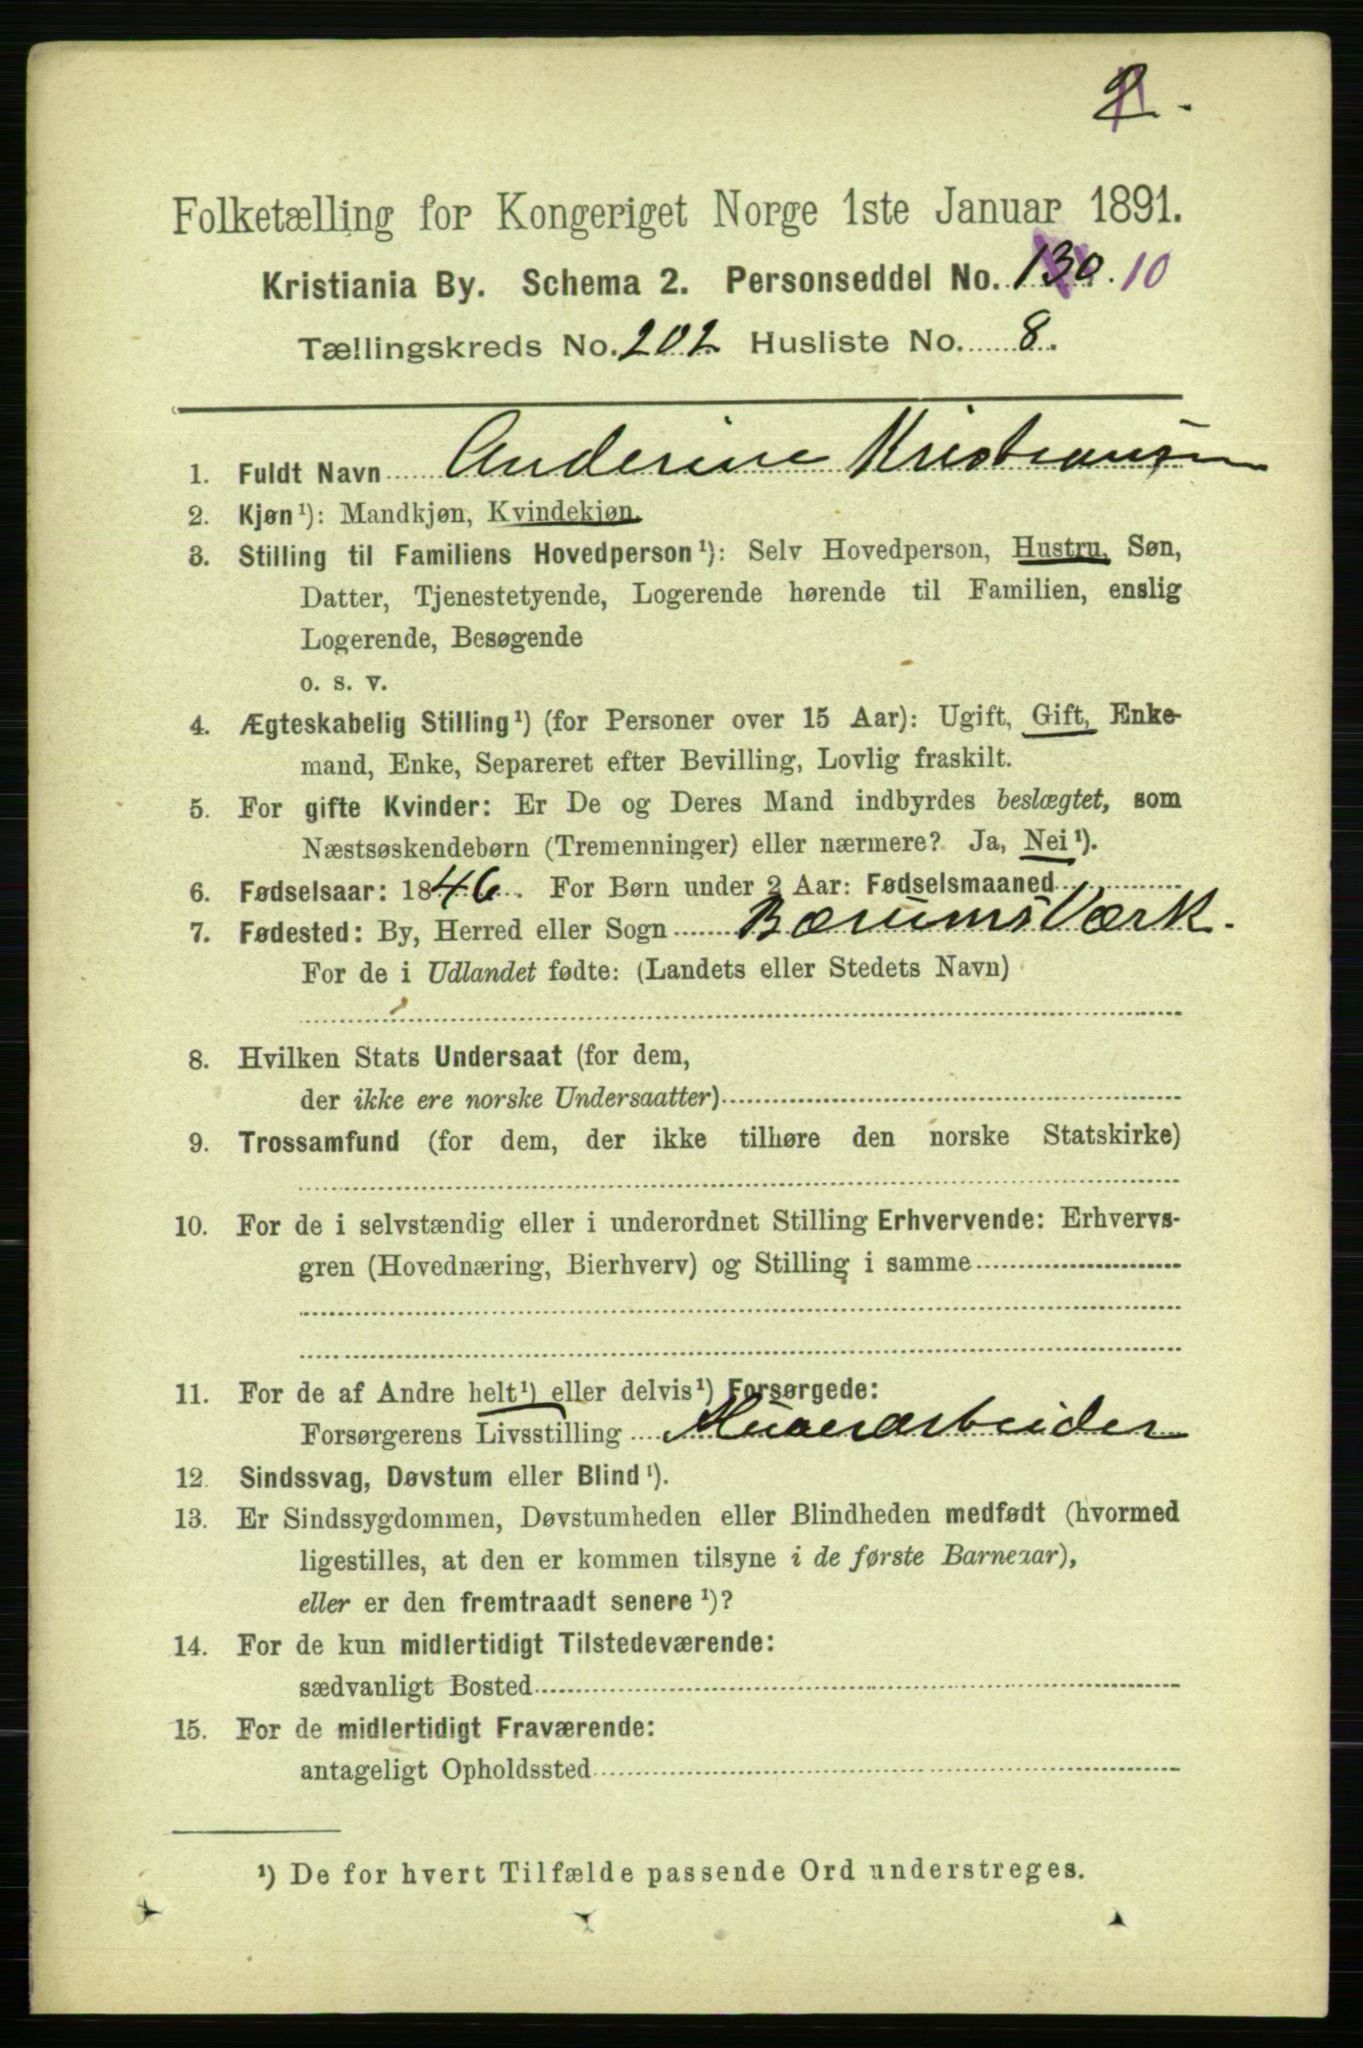 Folketælling for Kongeriget Norge 1ste Januar 1891.
Kristiania By. Schema 2. Personseddel No. 130. 10
Tællingskreds No. 202 Husliste No. 8.
1. Fuldt Navn Anderine Kristiansen
2. Kjøn¹): Mandkjøn, Kvindekjøn.
3. Stilling til Familiens Hovedperson¹): Selv Hovedperson, Hustru, Søn,
Datter, Tjenestetyende, Logerende hørende til Familien, enslig
Logerende, Besøgende
o. s. v.
4. Ægteskabelig Stilling¹) (for Personer over 15 Aar): Ugift, Gift, Enke-
mand, Enke, Separeret efter Bevilling, Lovlig fraskilt.
5. For gifte Kvinder: Er De og Deres Mand indbyrdes beslægtet, som
Næstsøskendebørn (Tremenninger) eller nærmere? Ja, Nei¹).
6. Fødselsaar: 1846. For Børn under 2 Aar: Fødselsmaaned
7. Fødested: By, Herred eller Sogn Bærums Værk.
For de i Udlandet fødte: (Landets eller Stedets Navn)
8. Hvilken Stats Undersaat (for dem,
der ikke ere norske Undersaatter)
9. Trossamfund (for dem, der ikke tilhøre den norske Statskirke)
10. For de i selvstændig eller i underordnet Stilling Erhvervende: Erhvervs-
gren (Hovednæring, Bierhverv) og Stilling i samme
11. For de af Andre helt¹) eller delvis¹) Forsørgede:
Forsørgerens Livsstilling Murerarbeider
12. Sindssvag, Døvstum eller Blind¹).
13. Er Sindssygdommen, Døvstumheden eller Blindheden medfødt (hvormed
ligestilles, at den er kommen tilsyne i de første Barneaar),
eller er den fremtraadt senere¹)?
14. For de kun midlertidigt Tilstedeværende:
sædvanligt Bosted
15. For de midlertidigt Fraværende:
antageligt Opholdssted
¹) De for hvert Tilfælde passende Ord understreges.